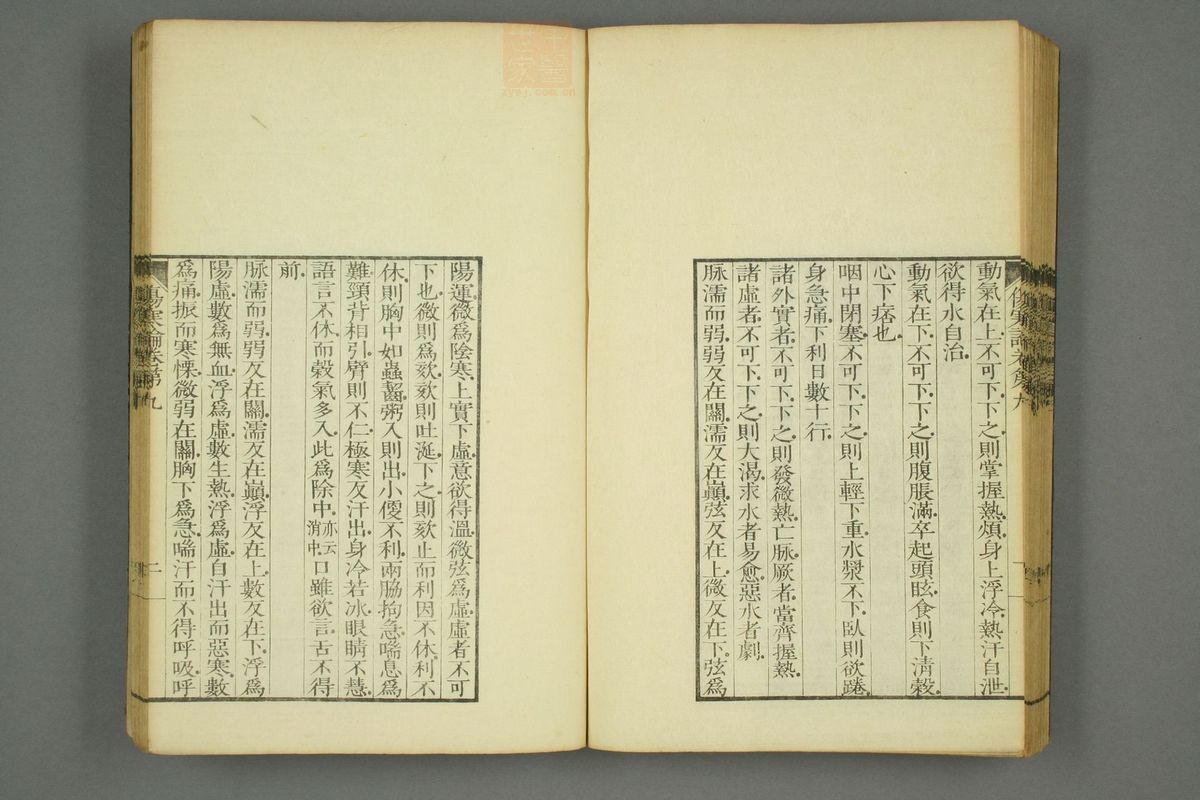 動氣在上不可下下之則掌握熱煩身上浮冷熱汗自泄
欲得水自治
動氣在下不可下下之則腹脹滿卒起頭眩食則下淸穀
心下痞也
咽中閉塞不可下下之則上輕下重水漿不下臥則欲踡
身急痛下利日數十行
諸外實者不可下下之則發微熱亡脉厥者當齊握熱
諸虛者不可下下之則大渴求水者易愈惡水者劇
脉濡而弱弱反在關濡反在巔弦反在上微反在下弦爲
陽運微爲陰寒上實下虛意欲得溫微弦爲虛虛者不可
下也微則爲欬欬則吐涎下之則欬止而利因不休利不
休則胸中如蟲齧粥入則出小便不利兩脇拘急喘息爲
難頸背相引臂則不仁極寒反汗出身冷若冰眼睛不慧
語言不休而穀氣多入此爲除中亦云消中口雖欲言舌不得
前
脉濡而弱弱反在關濡反在巔浮反在上數反在下浮爲
陽虛數爲無血浮爲虛數生熱浮爲虛自汗出而惡寒數
爲痛振而寒慄微弱在關胸下爲急喘汗而不得呼吸呼
傷寒論卷第九
二
zysj.com.cn